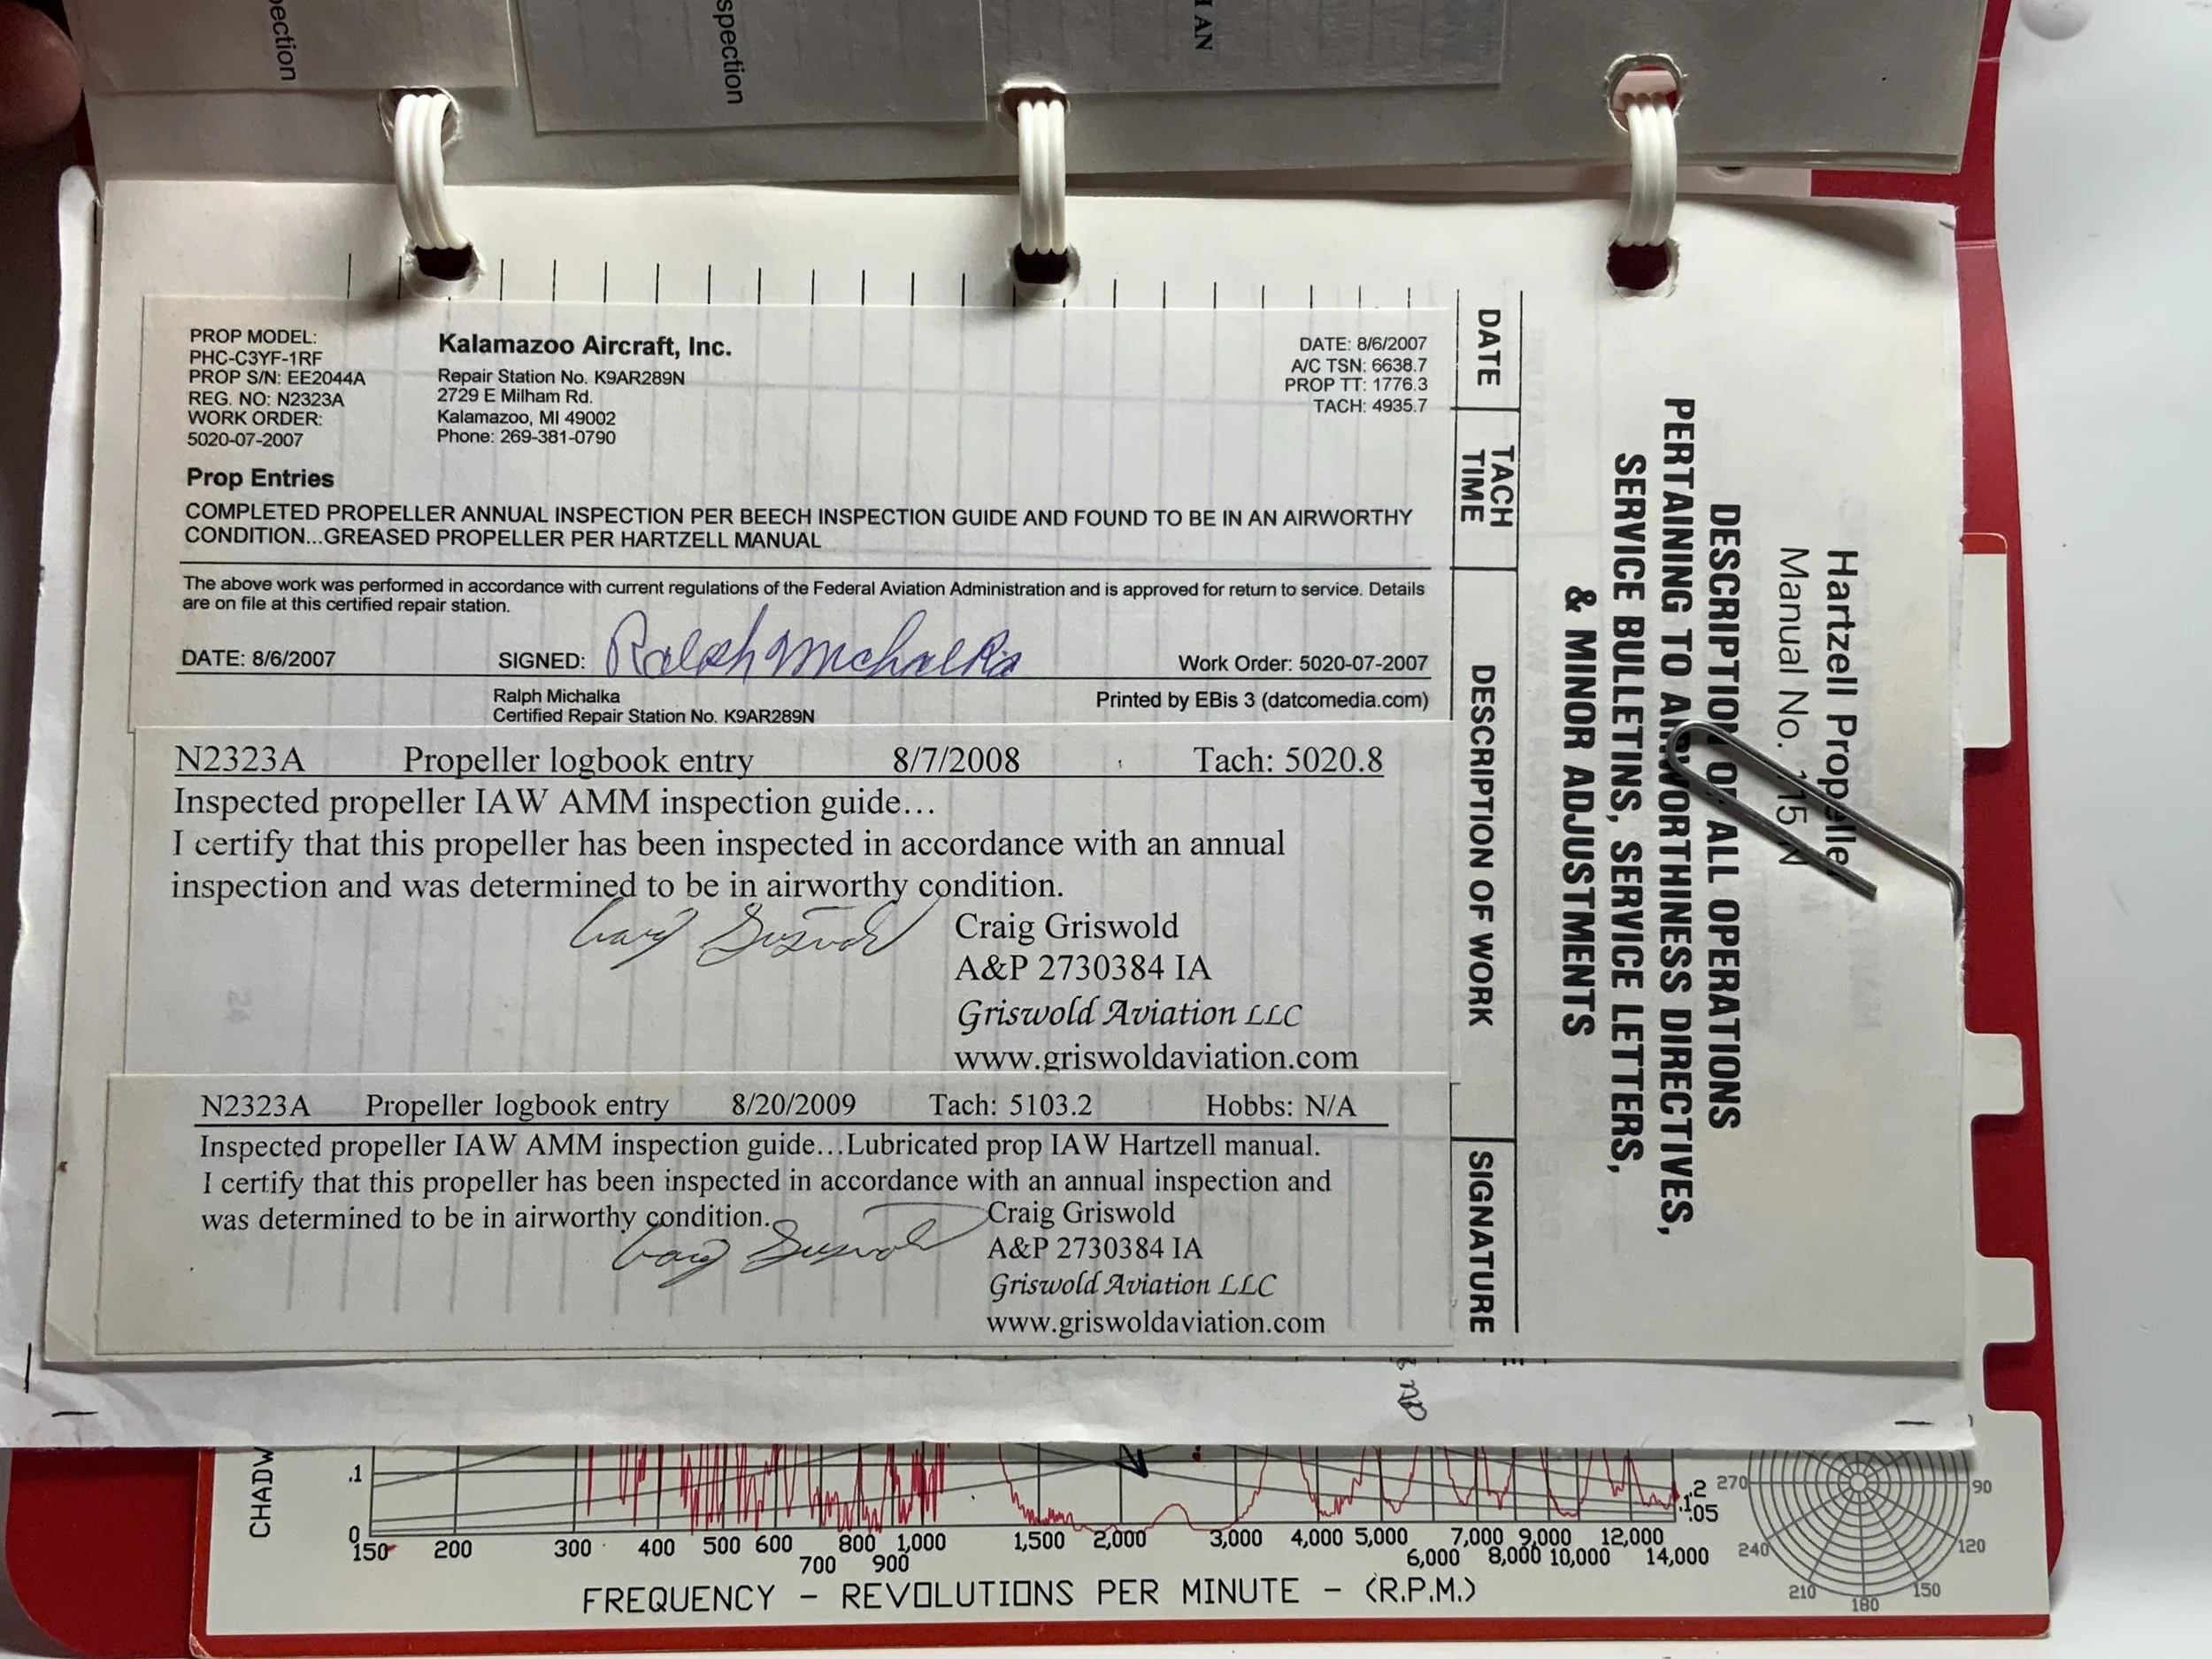 pection
spection
AN
PROP MODEL:
PHC-C3YF-1RF
PROP S/N: EE2044A
REG. NO: N2323A
WORK ORDER:
5020-07-2007
Kalamazoo Aircraft, Inc.
Repair Station No. K9AR289N
2729 E Milham Rd.
Kalamazoo, MI 49002
Phone: 269-381-0790
DATE: 8/6/2007
A/C TSN: 6638.7
PROP TT: 1776.3
TACH: 4935.7
Prop Entries
COMPLETED PROPELLER ANNUAL INSPECTION PER BEECH INSPECTION GUIDE AND FOUND TO BE IN AN AIRWORTHY
CONDITION...GREASED PROPELLER PER HARTZELL MANUAL
The above work was performed in accordance with current regulations of the Federal Aviation Administration and is approved for return to service. Details
are on file at this certified repair station.
DATE: 8/6/2007 SIGNED: Ralph Michalka Work Order: 5020-07-2007
Ralph Michalka
Certified Repair Station No. K9AR289N
Printed by EBis 3 (datcomedia.com)
N2323A Propeller logbook entry 8/7/2008 Tach: 5020.8
Inspected propeller IAW AMM inspection guide…
I certify that this propeller has been inspected in accordance with an annual
inspection and was determined to be in airworthy condition.
Craig Griswold
Craig Griswold
A&P 2730384 IA
Griswold Aviation LLC
www.griswoldaviation.com
N2323A Propeller logbook entry 8/20/2009 Tach: 5103.2 Hobbs: N/A
Inspected propeller IAW AMM inspection guide…Lubricated prop IAW Hartzell manual.
I certify that this propeller has been inspected in accordance with an annual inspection and
was determined to be in airworthy condition.
Craig Griswold
Craig Griswold
A&P 2730384 IA
Griswold Aviation LLC
www.griswoldaviation.com
DATE
TACH
TIME
DESCRIPTION OF WORK
SIGNATURE
Hartzell Propeller
Manual No. 115N
DESCRIPTION OF ALL OPERATIONS
PERTAINING TO AIRWORTHINESS DIRECTIVES,
SERVICE BULLETINS, SERVICE LETTERS,
& MINOR ADJUSTMENTS
24
CHADW
.1
0
150 200 300 400 500 600 700 800 900 1,000 1,500 2,000 3,000 4,000 5,000 6,000 7,000 8,000 9,000 10,000 12,000 14,000
.2
.1
.05
FREQUENCY - REVOLUTIONS PER MINUTE - (R.P.M.)
270 90
240 120
210 150
180